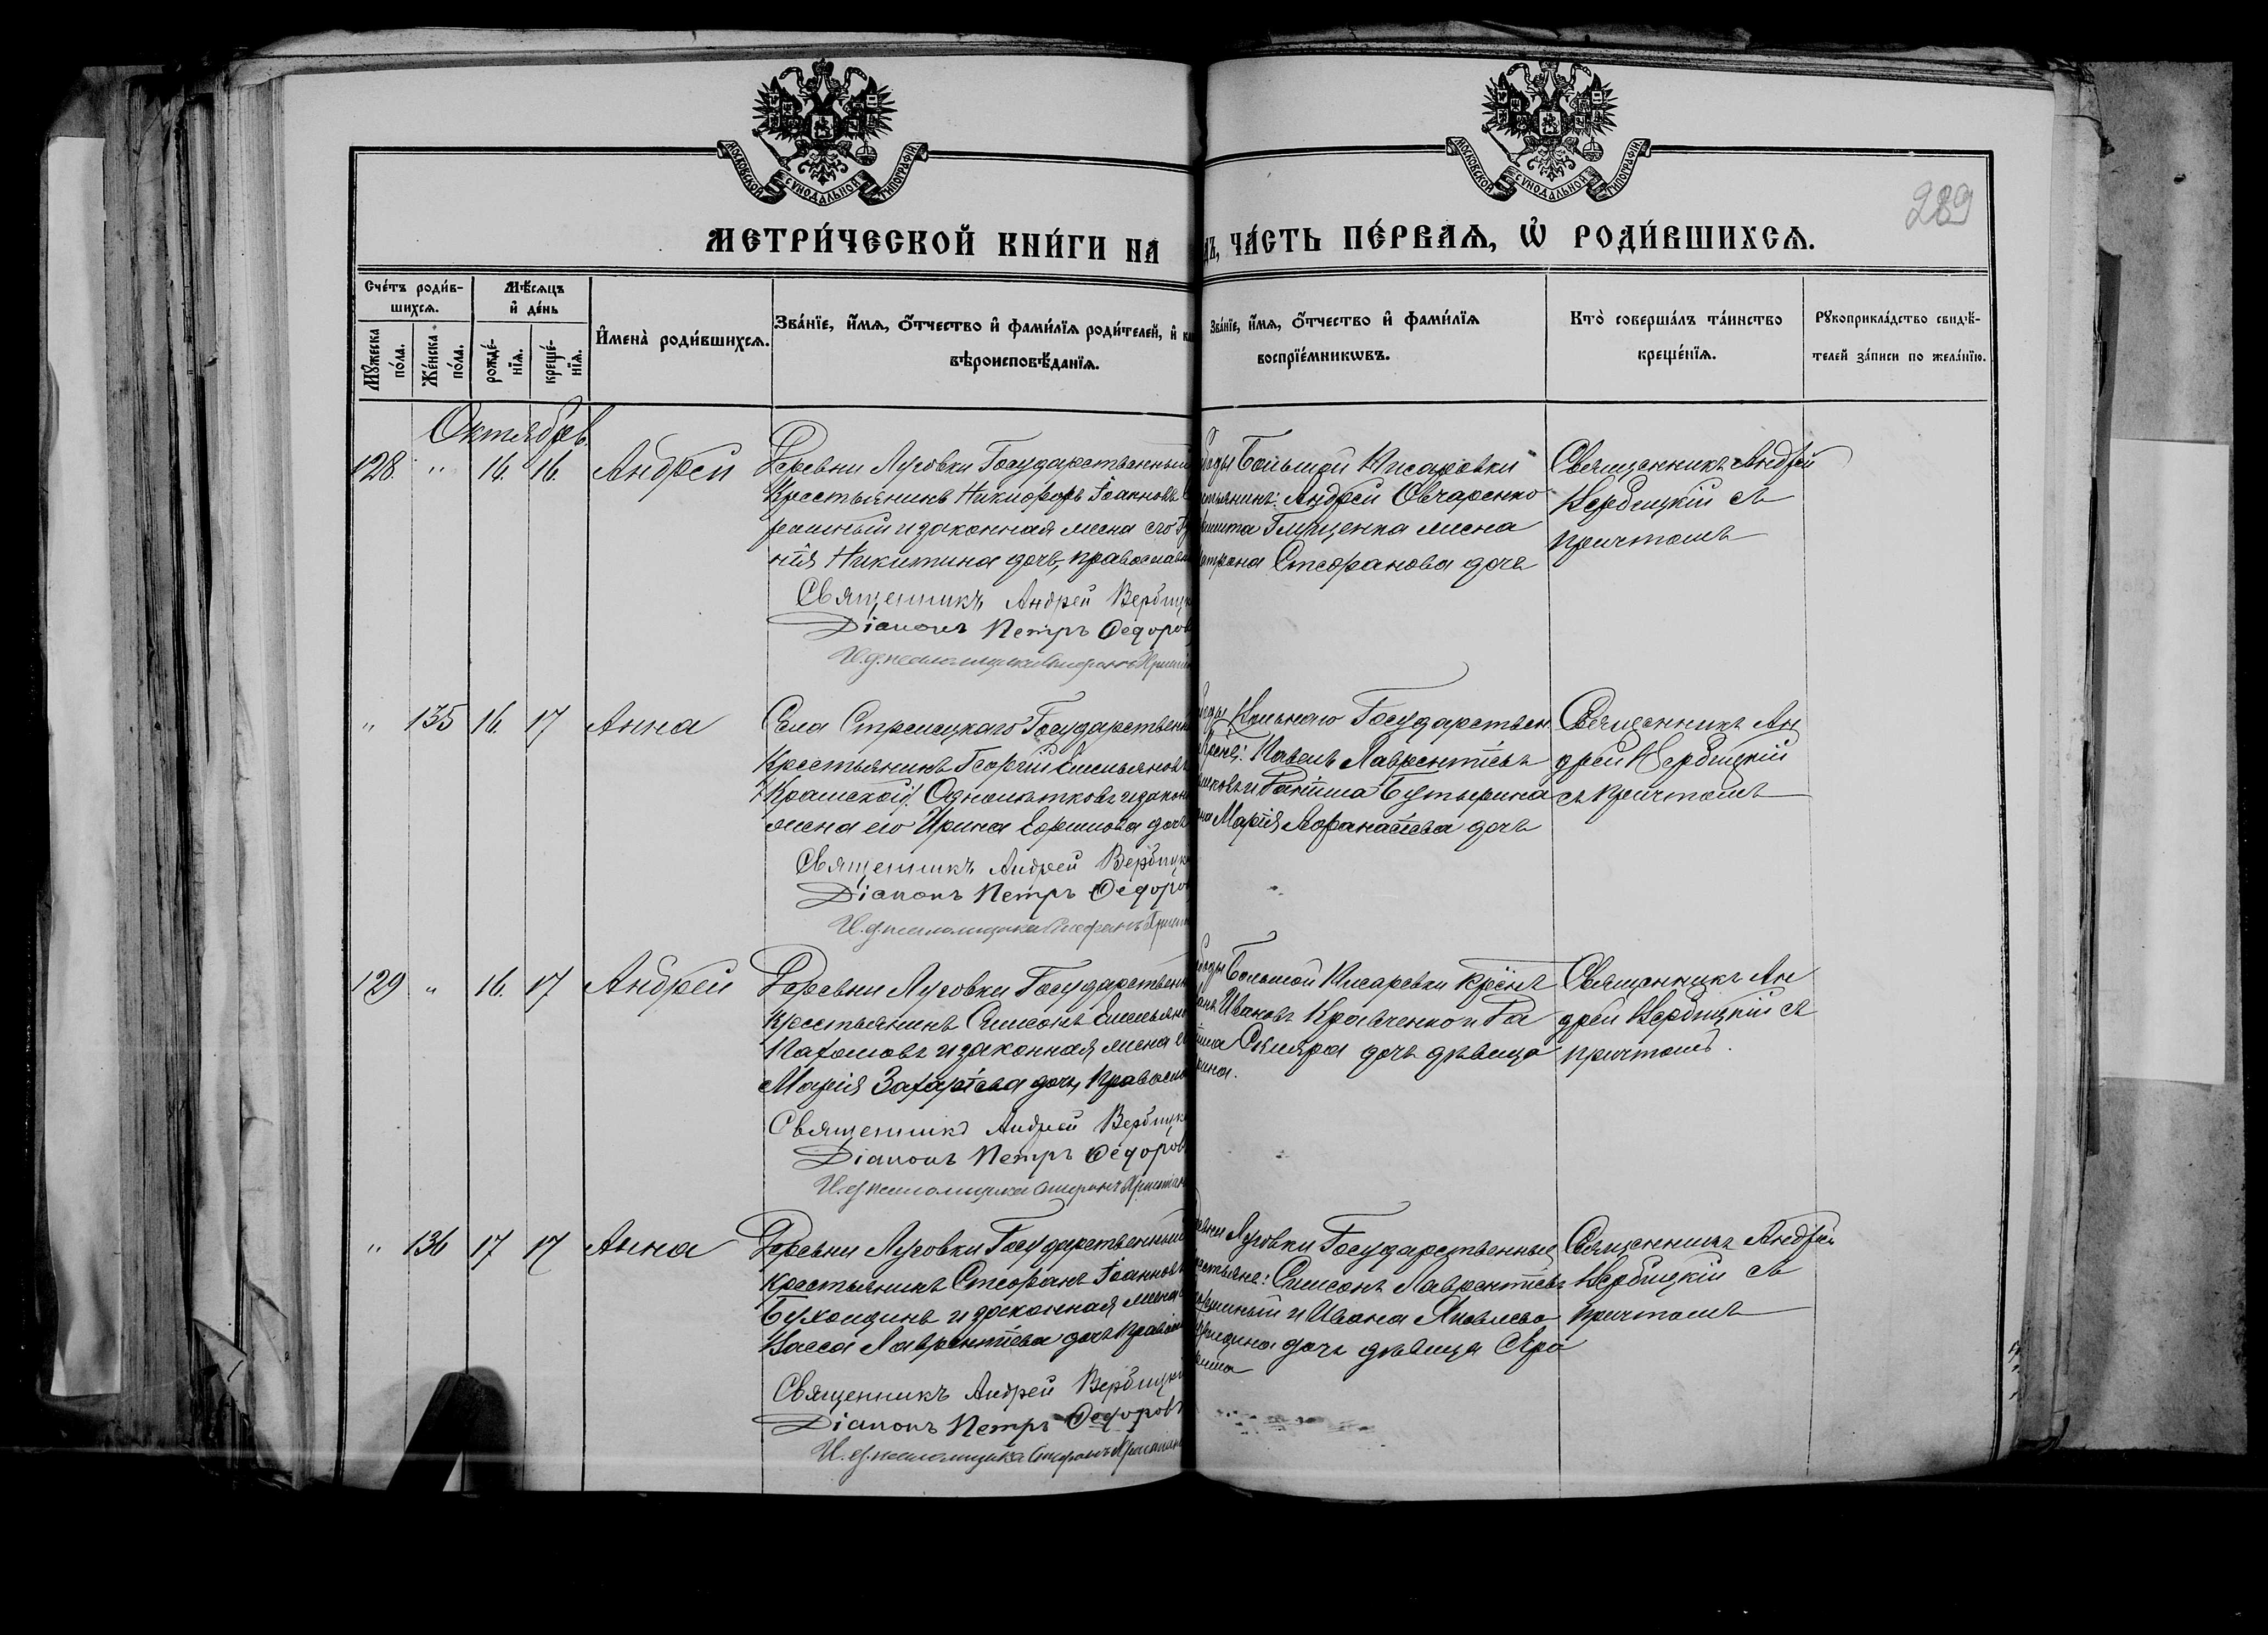 МОСКОВСКОЙ СѴНОДАЛЬНОЙ ТИПОГРАФІИ
МОСКОВСКОЙ СѴНОДАЛЬНОЙ ТИПОГРАФІИ
289
МЕТРИ́ЧЕСКОЙ КНИ́ГИ НА
ДЪ, ЧА́СТЬ ПЕ́РВАѦ, Ѡ҆ РОДИ́ВШИХСѦ.
Сче́тъ роди́в-
шихсѧ.
Мꙋжеска по́ла.
Же́нска по́ла.
Мѣ́сѧцъ
и҆ де́нь
рожде́-нїѧ.
креще́-нїѧ.
И҆мена̀ роди́вшихсѧ.
Зва́нїе, и҆́мѧ, ѻ҆́тчество и҆ фами́лїѧ роди́телей, и҆
вѣроисповѣ́данїѧ.
Зва́нїе, и҆́мѧ, ѻ҆́тчество и҆ фами́лїѧ
воспрїе́мникѡвъ.
Кто̀ соверша́лъ та́инство
креще́нїѧ.
Рꙋкоприкла́дство свидѣ́-
телей за́писи по жела́нїю.
Октябрь.
128. " 16. 16. Андрей
Деревни Луговки Государственный
Крестьянинъ Никифоръ Іоанновъ
и законная жена его
Никитина дочь, православ
Священникъ Андрей Вербицк
Діаконъ Петръ Ѳедоров
И. д. псаломщика Стефанъ
Большой Писаровки
Андрей Овчаренко
Глущенка жена
Стефанова дочь
Священникъ Андрей
Вербицкій съ
причтомъ
" 135 16. 17 Анна
Села Стрелецкаго Государственн
Крестьянинъ Георгій Емельяновъ
Крамской / Однолѣтковъ и закон
жена его Ирина Ефимова дочь
Священникъ Андрей Вербицк
Діаконъ Петръ Ѳедоро
И. д. псаломщика Стефанъ
Вольнаго Государствен.
Павелъ Лаврентіевъ
Бутырина
Марія Аѳанасіева дочь
Священникъ Ан
дрей Вербицкій
съ причтомъ
129 " 16. 17 Андрей
Деревни Луговки Государственн
Крестьянинъ Симеонъ Емельян
Пахомовъ и законная жена е
Марія Захаріева дочь, Правосла
Священникъ Андрей Вербицк
Діаконъ Петръ Ѳедоров
И. д. псаломщика Стефанъ
Большой Писаревки
Ивановъ Кравченко и
Скляра дочь дѣвица
Священникъ Ан
дрей Вербицкій съ
причтомъ.
" 136 17 17 Анна
Деревни Луговки Государственный
Крестьянинъ Стефанъ Іоанновъ
и законная жена
Васса Лаврентіева дочь Правосл
Священникъ Андрей Вербицк
Діаконъ Петръ Ѳедоровъ
И. д. псаломщика Стефанъ
Луговки Государственные
Симеонъ Лаврентіевъ
и Ивана Яковлева
дочь дѣвица
Священникъ Андрей
Вербицкій съ
причтомъ